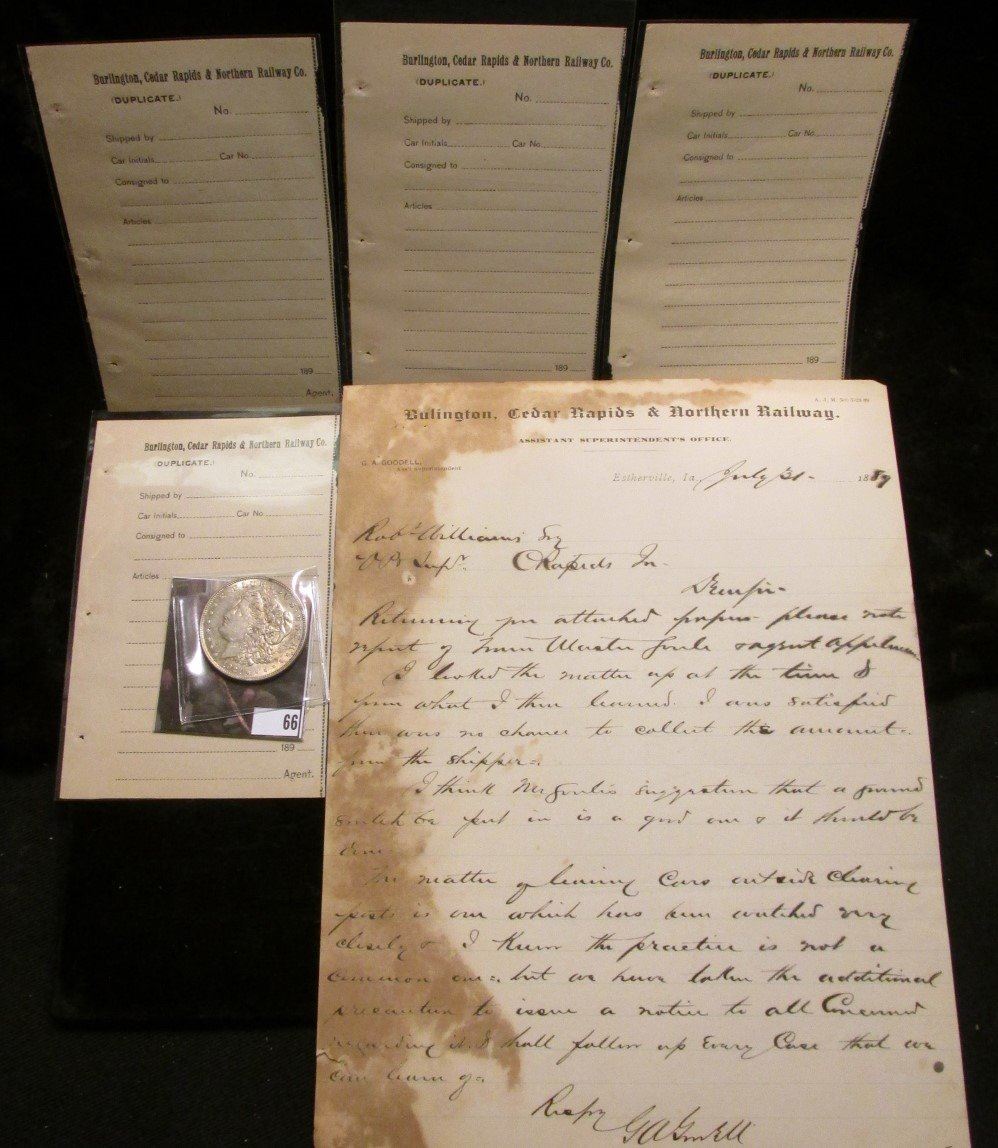 Burlington, Cedar Rapids & Northern Railway Co.
(DUPLICATE.)
No.
Shipped by
Car Initials Car No.
Consigned to
Articles
189
Agent.
Burlington, Cedar Rapids & Northern Railway Co.
(DUPLICATE.)
No.
Shipped by
Car Initials Car No.
Consigned to
Articles
189
Burlington, Cedar Rapids & Northern Railway Co.
(DUPLICATE.)
No.
Shipped by
Car Initials Car No.
Consigned to
Articles
189
Burlington, Cedar Rapids & Northern Railway Co.
(DUPLICATE.)
No.
Shipped by
Car Initials Car No.
Consigned to
Articles
189
Agent.
66
Bulington, Cedar Rapids & Northern Railway.
ASSISTANT SUPERINTENDENT'S OFFICE.
G. A. GOODELL,
Ass't Superintendent
Estherville, Ia. July 31 - 1889
Robt Williams Esq
C Rapids Ia.
Dear Sir -
Returning you attached papers please note
report of Train Master &  agent
I looked the matter up at the time &
from what I then learned. I was satisfied
there was no chance to collect the amount
from the shipper.
I think Mr suggestion that a ground
switch be put in is a good one & it should be
done
The matter of leaving Cars outside Clearing
posts is one which has been watched very
closely & I know the practice is not a
common one. but we have taken the additional
precaution to issue a notice to all Concerned
regarding it. I shall follow up Every Case that we
can learn of.
Respy
G A Goodell